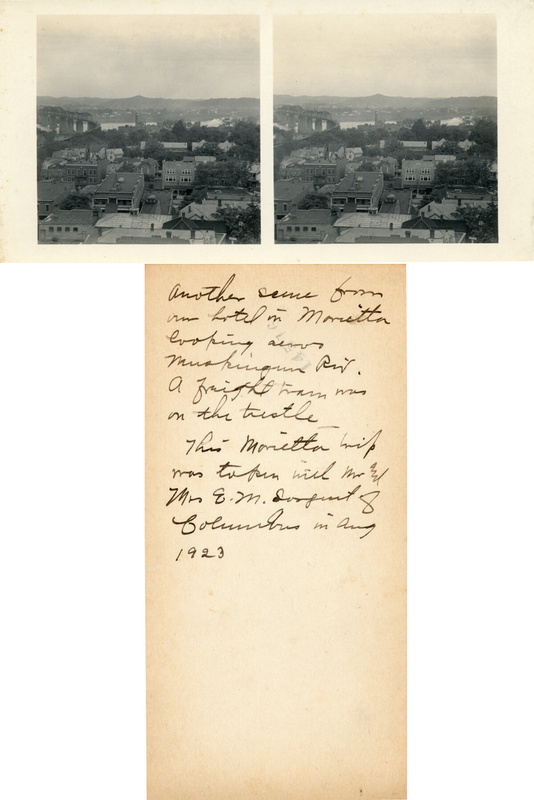 Another scene from
our hotel in Marietta
looking across
Muskingum Riv.
A freight train was
on the trestle
This Marietta trip
was taken with Mr and
Mrs E. M. Sargent of
Columbus in Aug
1923